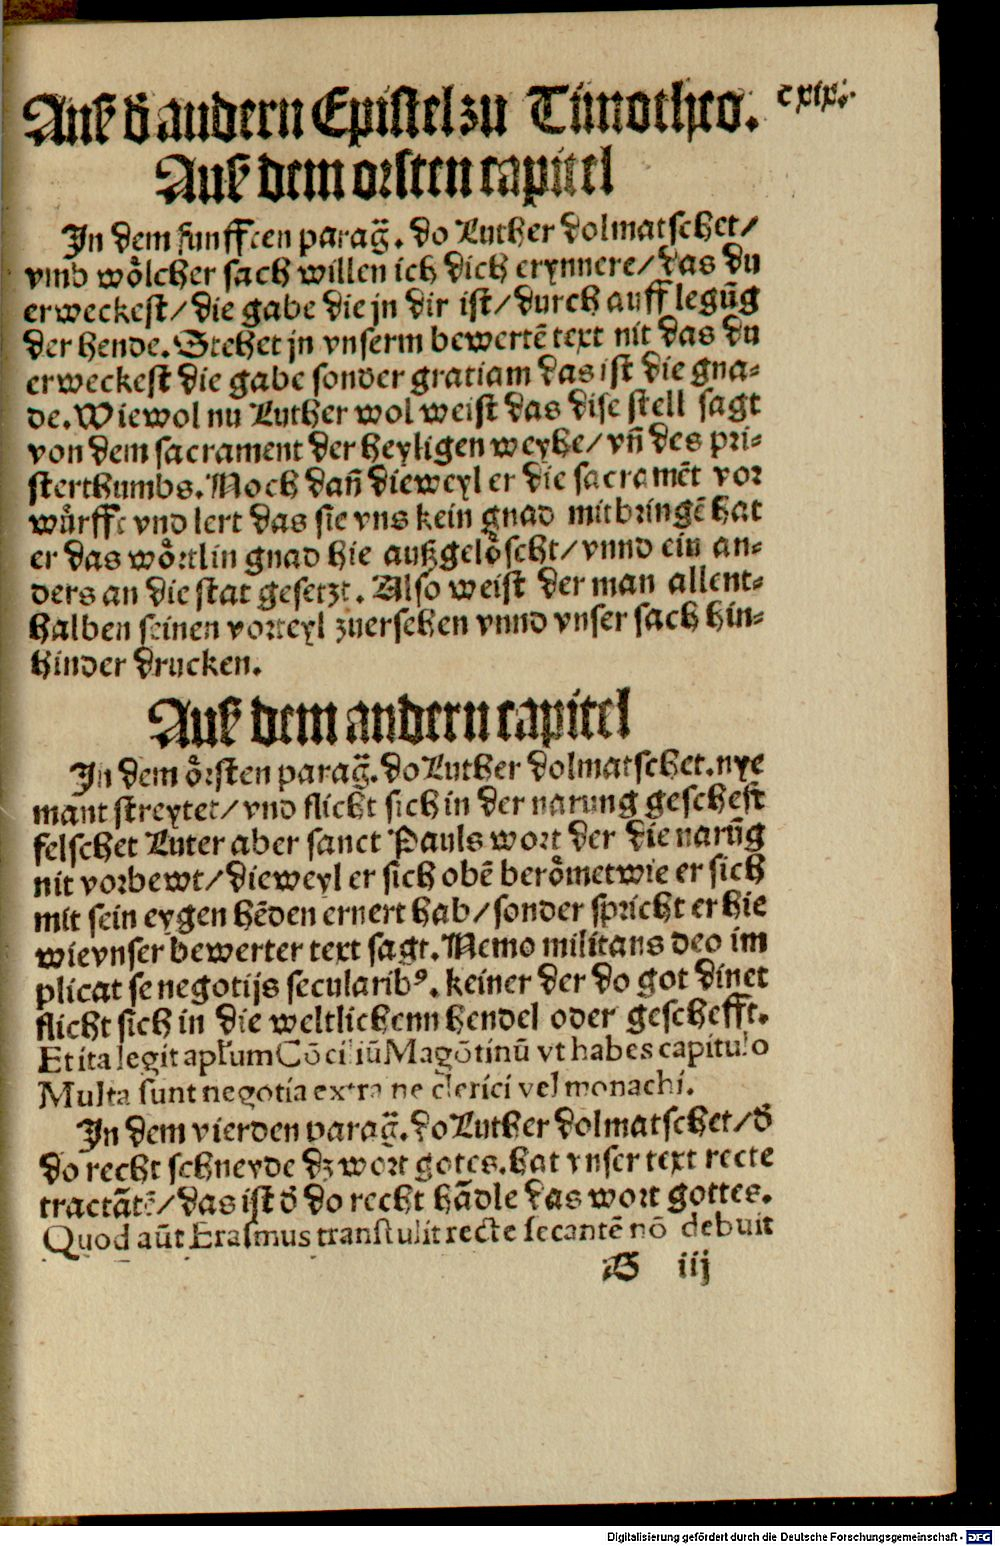 Auß d̄ andern Epistel zu Timotheo. cxix.
Auß dem orsten capitel
In dem funfften parag̃. do Luther dolmatschet/
vmb wölcher sach willen ich dich erynnere/das du
erweckest/die gabe die jn dir ist/durch auff legũg
der hende. Stehet jn vnserm bewertē text nit das du
erweckest die gabe sonder gratiam das ist die gna-
de. Wiewol nu Luther wol weist das dise stell sagt
von dem sacrament der heyligen weyhe/vñ des pri-
sterthumbs. Noch dañ dieweyl er die sacramēt vor
würfft vnd lert das sie vns kein gnad mitbringē hat
er das wörtlin gnad hie außgelöscht/vnnd ein an-
ders an die stat gesetzt. Also weist der man allent-
halben seinen vorteyl zuersehen vnnd vnser sach hin-
hinder drucken.
Auß dem andern capitel
In dem örsten parag̃. do Luther dolmatschet. nye
mant streytet/vnd flicht sich in der narung geschefft
felschet Luter aber sanct Pauls wort der die narũg
nit vorbewt/dieweyl er sich obē berömet wie er sich
mit sein eygen hēden ernert hab/sonder spricht er hie
wie vnser bewerter text sagt. Nemo militans deo im
plicat se negotijs secularibꝰ. keiner der do got dinet
flicht sich in die weltlichenn hendel oder geschefft.
Et ita legit apłum Cōciliū Magōtinū vt habes capitulo
Multa sunt negotia extra ne clerici vel monachi.
In dem vierden parag̃. do Luther dolmatschet/d̄
do recht schneyde dz wort gotes. hat vnser text recte
tractātē/das ist d̄ do recht hādle das wort gottes.
Quod aūt Erasmus transtulit recte secantē nō debuit
B iij
Digitalisierung gefördert durch die Deutsche Forschungsgemeinschaft - DFG